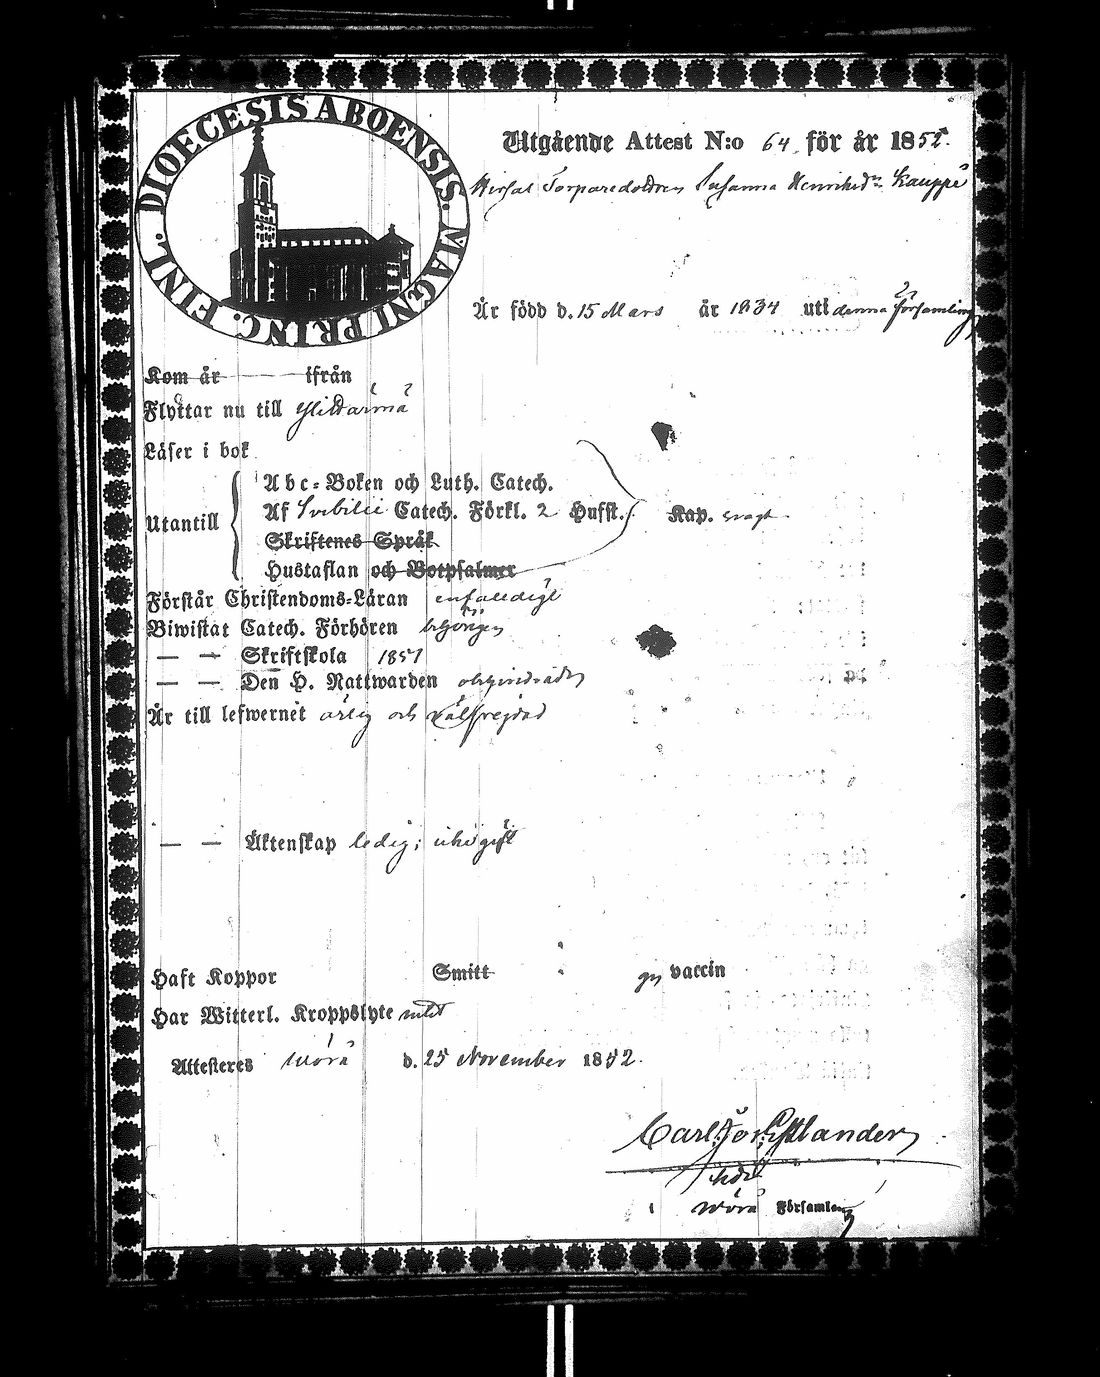 DIOECESIS ABOENSIS. MAGNI PRINC. FINL.
Utgående Attest N:o 64 för år 1852.
Torparedottren Susanna Henriksdr Kauppi
Är född d. 15 Mars år 1834 uti denna församling
Kom år ifrån
Flyttar nu till Ylihärmä
Läser i bok
Utantill
Abc-Boken och Luth. Catech.
Af Svebilii Catech. Förkl. 2 Hufst. Kap. svagt
Skriftenes Språk
Hustaflan och Botpsalmer
Förstår Christendoms-Läran enfaldigt
Biwistat Catech. Förhören behörigen
— — Skriftskola 1851
— — Den H. Nattwarden
Är till lefwernet ärlig och välfrejdad
— — Äktenskap ledig;
Haft Koppor Smitt vaccin
Har Witterl. Kroppslyte
Attesteres Wörå d. 25 November 1852.
Carl
i Wörå Församling